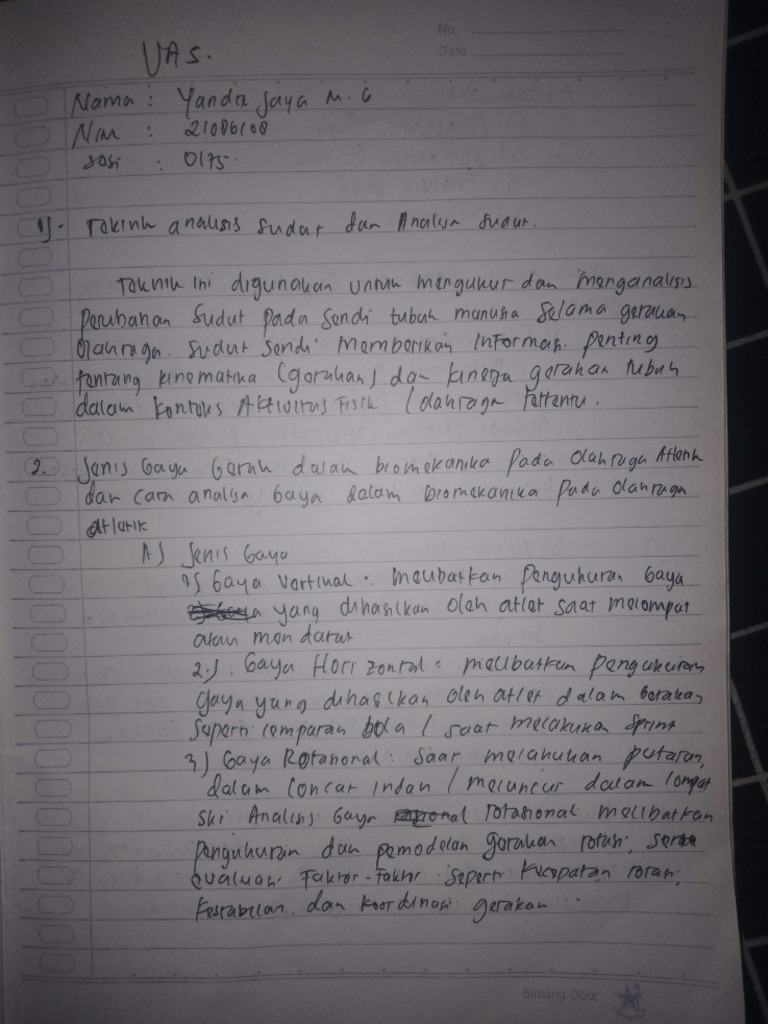 No.
Date
UAS.
Nama : Yandra Jaya M. G
Nim : 21086108
sesi : 0175.
1). Teknik analisis sudut dan Analisa sudut.
Teknik ini digunakan untuk mengukur dan menganalisis
perubahan sudut pada sendi tubuh manusia selama gerakan
olahraga. sudut sendi memberikan informasi penting
tentang kinematika (gerakan) dan kinerja gerakan tubuh
dalam konteks Aktivitas Fisik / olahraga tertentu.
2. Jenis Gaya Gerak dalam biomekanika pada olahraga Atletik
dan cara analisa Gaya dalam biomekanika pada olahraga
atletik
A) Jenis Gaya
1) Gaya Vertikal : Melibatkan pengukuran Gaya
yang dihasilkan oleh atlet saat melompat
atau mendarat
2.) . Gaya Horizontal : melibatkan pengukuran
gaya yang dihasilkan oleh atlet dalam gerakan
seperti lemparan bola / saat melakukan sprint
3) Gaya Rotasional : saat melakukan putaran,
dalam loncat indah / meluncur dalam lompat
ski Analisis Gaya rotasional melibatkan
pengukuran dan pemodelan gerakan rotasi, serta
evaluasi faktor-faktor seperti kecepatan rotasi,
kestabilan, dan koordinasi gerakan ...
Bintang Obor